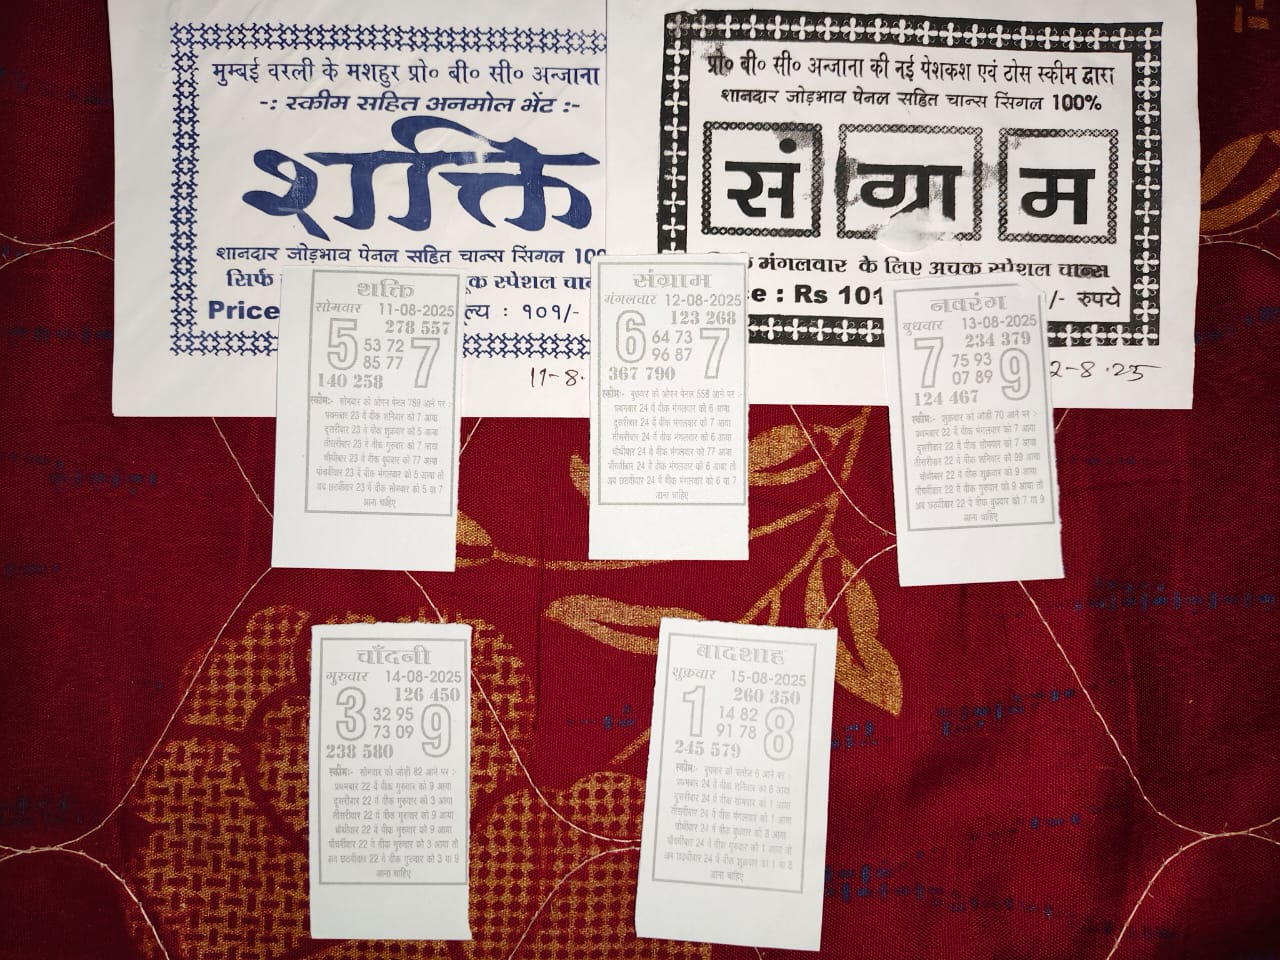 मुम्बई वरली के मशहुर प्रो० बी० सी० अन्जाना
-: स्कीम सहित अनमोल भेंट :-
शक्ति
शानदार जोड़भाव पेनल सहित चान्स सिंगल
सिर्फ
स्पेशल
Price
ल्य : १०१/-
11-8.
प्रो० बी० सी० अन्जाना की नई पेशकश एवं ठोस स्कीम द्वारा
शानदार जोड़भाव पेनल सहित चान्स सिंगल 100%
सं ग्रा म
मंगलवार के लिए अचक स्पेशल चान्स
e : Rs 101
/- रुपये
2-8.25
शक्ति
सोमवार 11-08-2025
278 557
5 53 72 7
85 77
140 258
स्कीम:- सोमवार को ओपन पेनल 789 आने पर :-
प्रथमबार 23 वें वीक शनिवार को 7 आया
दुसरीबार 23 वें वीक शुक्रवार को 5 आया
तीसरीबार 23 वें वीक गुरुवार को 7 आया
चौथीबार 23 वें वीक बुधवार को 77 आया
पाँचवींबार 23 वें वीक मंगलवार को 5 आया तो
अब छठवींबार 23 वें वीक सोमवार को 5 या 7
आना चाहिए
संग्राम
मंगलवार 12-08-2025
123 268
6 64 73 7
96 87
367 790
स्कीम:- बुधवार को ओपन पेनल 558 आने पर :-
प्रथमबार 24 वें वीक मंगलवार को 6 आया
दुसरीबार 24 वें वीक मंगलवार को 7 आया
तीसरीबार 24 वें वीक मंगलवार को 6 आया
चौथीबार 24 वें वीक मंगलवार को 77 आया
पाँचवींबार 24 वें वीक मंगलवार को 6 आया तो
अब छठवींबार 24 वें वीक मंगलवार को 6 या 7
आना चाहिए
नवरंग
बुधवार 13-08-2025
234 379
7 75 93 9
07 89
124 467
स्कीम:- शुक्रवार को जोड़ी 70 आने पर :-
प्रथमबार 22 वें वीक मंगलवार को 7 आया
दुसरीबार 22 वें वीक सोमवार को 7 आया
तीसरीबार 22 वें वीक शनिवार को 99 आया
चौथीबार 22 वें वीक शुक्रवार को 9 आया
पाँचवींबार 22 वें वीक गुरुवार को 9 आया तो
अब छठवींबार 22 वें वीक बुधवार को 7 या 9
आना चाहिए
चाँदनी
गुरुवार 14-08-2025
126 450
3 32 95 9
73 09
238 580
स्कीम:- सोमवार को जोड़ी 82 आने पर :-
प्रथमबार 22 वें वीक गुरुवार को 9 आया
दुसरीबार 22 वें वीक गुरुवार को 3 आया
तीसरीबार 22 वें वीक गुरुवार को 9 आया
चौथीबार 22 वें वीक गुरुवार को 9 आया
पाँचवींबार 22 वें वीक गुरुवार को 3 आया तो
अब छठवींबार 22 वें वीक गुरुवार को 3 या 9
आना चाहिए
बादशाह
शुक्रवार 15-08-2025
260 350
1 14 82 8
91 78
245 579
स्कीम:- बुधवार को क्लोज 6 आने पर :-
प्रथमबार 24 वें वीक शनिवार को 8 आया
दुसरीबार 24 वें वीक सोमवार को 1 आया
तीसरीबार 24 वें वीक मंगलवार को 1 आया
चौथीबार 24 वें वीक बुधवार को 8 आया
पाँचवींबार 24 वें वीक गुरुवार को 1 आया तो
अब छठवींबार 24 वें वीक शुक्रवार को 1 या 8
आना चाहिए